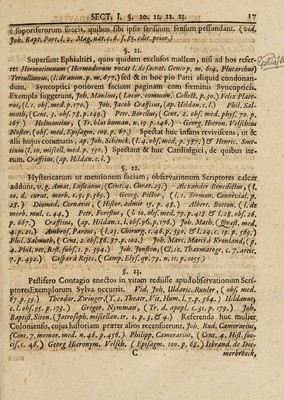 SECT. I. §. 20. 21. 22. 23. 17
e suporiferorum succis, quibus sibi ipsi sensilium sensum pessundant. (vid.
Joh. Bapt. Port. l. 2. Mag. nat. c. 6. f. 85. edit. prior.)
§. 21.
Supersunt Ephialtici, quos quidem exclusos mallem, nisi ad hos refer-
et Hermotimum (Hermodorum vocat
Tertullianus, (l. de anim. p. m. 677.) sed & in hoc pio Patri aliquid condonan-
dum, Syncoptici potiorem faciunt paginam cum formis Syncopticis.
Exempla suggerunt,
rus, (l. 1. obs. med. p. 170.) Joh. Jacob Craftius, (ap. Hildan. c. l.) Phil. Sal-
muth, (Cent. 3. obs. 78. p. 149.) Petr. Borellus, (Cent. 2. obs. med. phys. 70. p.
167.)
Nuster, (obs. med. Epistagm. 100. p. 67.) Spectat huc infans reviviscens, ut &
alii hujus commatis, ap. Joh. Schenck. (l. 4. obs. med. p. 587.) & Henric. Sme-
tium, (l. 10. miscell. med. p. 550.) Spectant & huc Cardialgici, de quibus ite-
rum. Craftius, (ap. Hildan. c. l.)
§. 22.
Hystericarum ut mentionem faciam, observationum Scriptores calcar
addunt, v. g. Amat. Lusitanus, (Cent. 4. Curat. 23.) Alexander Benedictus, (l.
10. d. curat. morb. c. 9. p. 369.) Georg. Pictor, (l. 1. Sermon. Convivial. p.
28.) Diomed. Cornarus (Histor. admir. 15. p. 48.) Albert. Botton. (l. de
morb. mul. c. 44.) Petr. Forestus, (l. 10. obs. med. 79. p. 418 & l. 28. obs. 26.
p. 667.) Craftius, (ap. Hildan. c. l. obs. 96. p. 176.) Joh. Math. (Quæst. med.
4. p. 21.) Ambros. Paræus, (l. 23. Chirurg. c. 46. p. 550. & l. 24. c. 15. p. 569.)
Phil. Salmuth, (Cent. 2. obs. 86. p. 102.) Joh. Marc. Marci à Kronland, (p.
4. Phil. vet. Rest. subsect. 2. p. 594.) Joh. Jonston, (Cl. 10. Thavmatogr. c. 7. artic.
7. p. 492.) Caspar à Rejes, (Camp. Elys. qv. 79. n. 11. p. 1055.)
§. 23.
Pestifero Contagio enectos in vitam rediisse apud observationum Scri-
ptores Exemplorum Sylva occurrit. Vid. Joh. Uldaric. Rumler, (obs. med.
67. p. 39.) Theodor. Zwinger, (T. 2. Theatr. Vit. Hum. l. 7. p. 564.) Hildanus,
c. l. obs. 95. p. 173.) Gregor. Nymman, (Tr. d. apopl. c. 31. p. 179.) Joh.
Baptist. Siton. (Jatrosoph. miscellan. tr. 1. p. 3. & 4.) Referenda huc mulier
Coloniensis, cujus historiam præter alios recensuerunt, Joh. Rud. Camerarius,
(Cent. 7. memor. med. n. 46. p. 456.) Philipp. Camerarius, (Cent. 4. Hist. suc-
cis. c. 46.) Georg Hieronym. Velsch. (Epistagm. 100. p. 65.) Isbrand. de Die-
C
merbröeck,